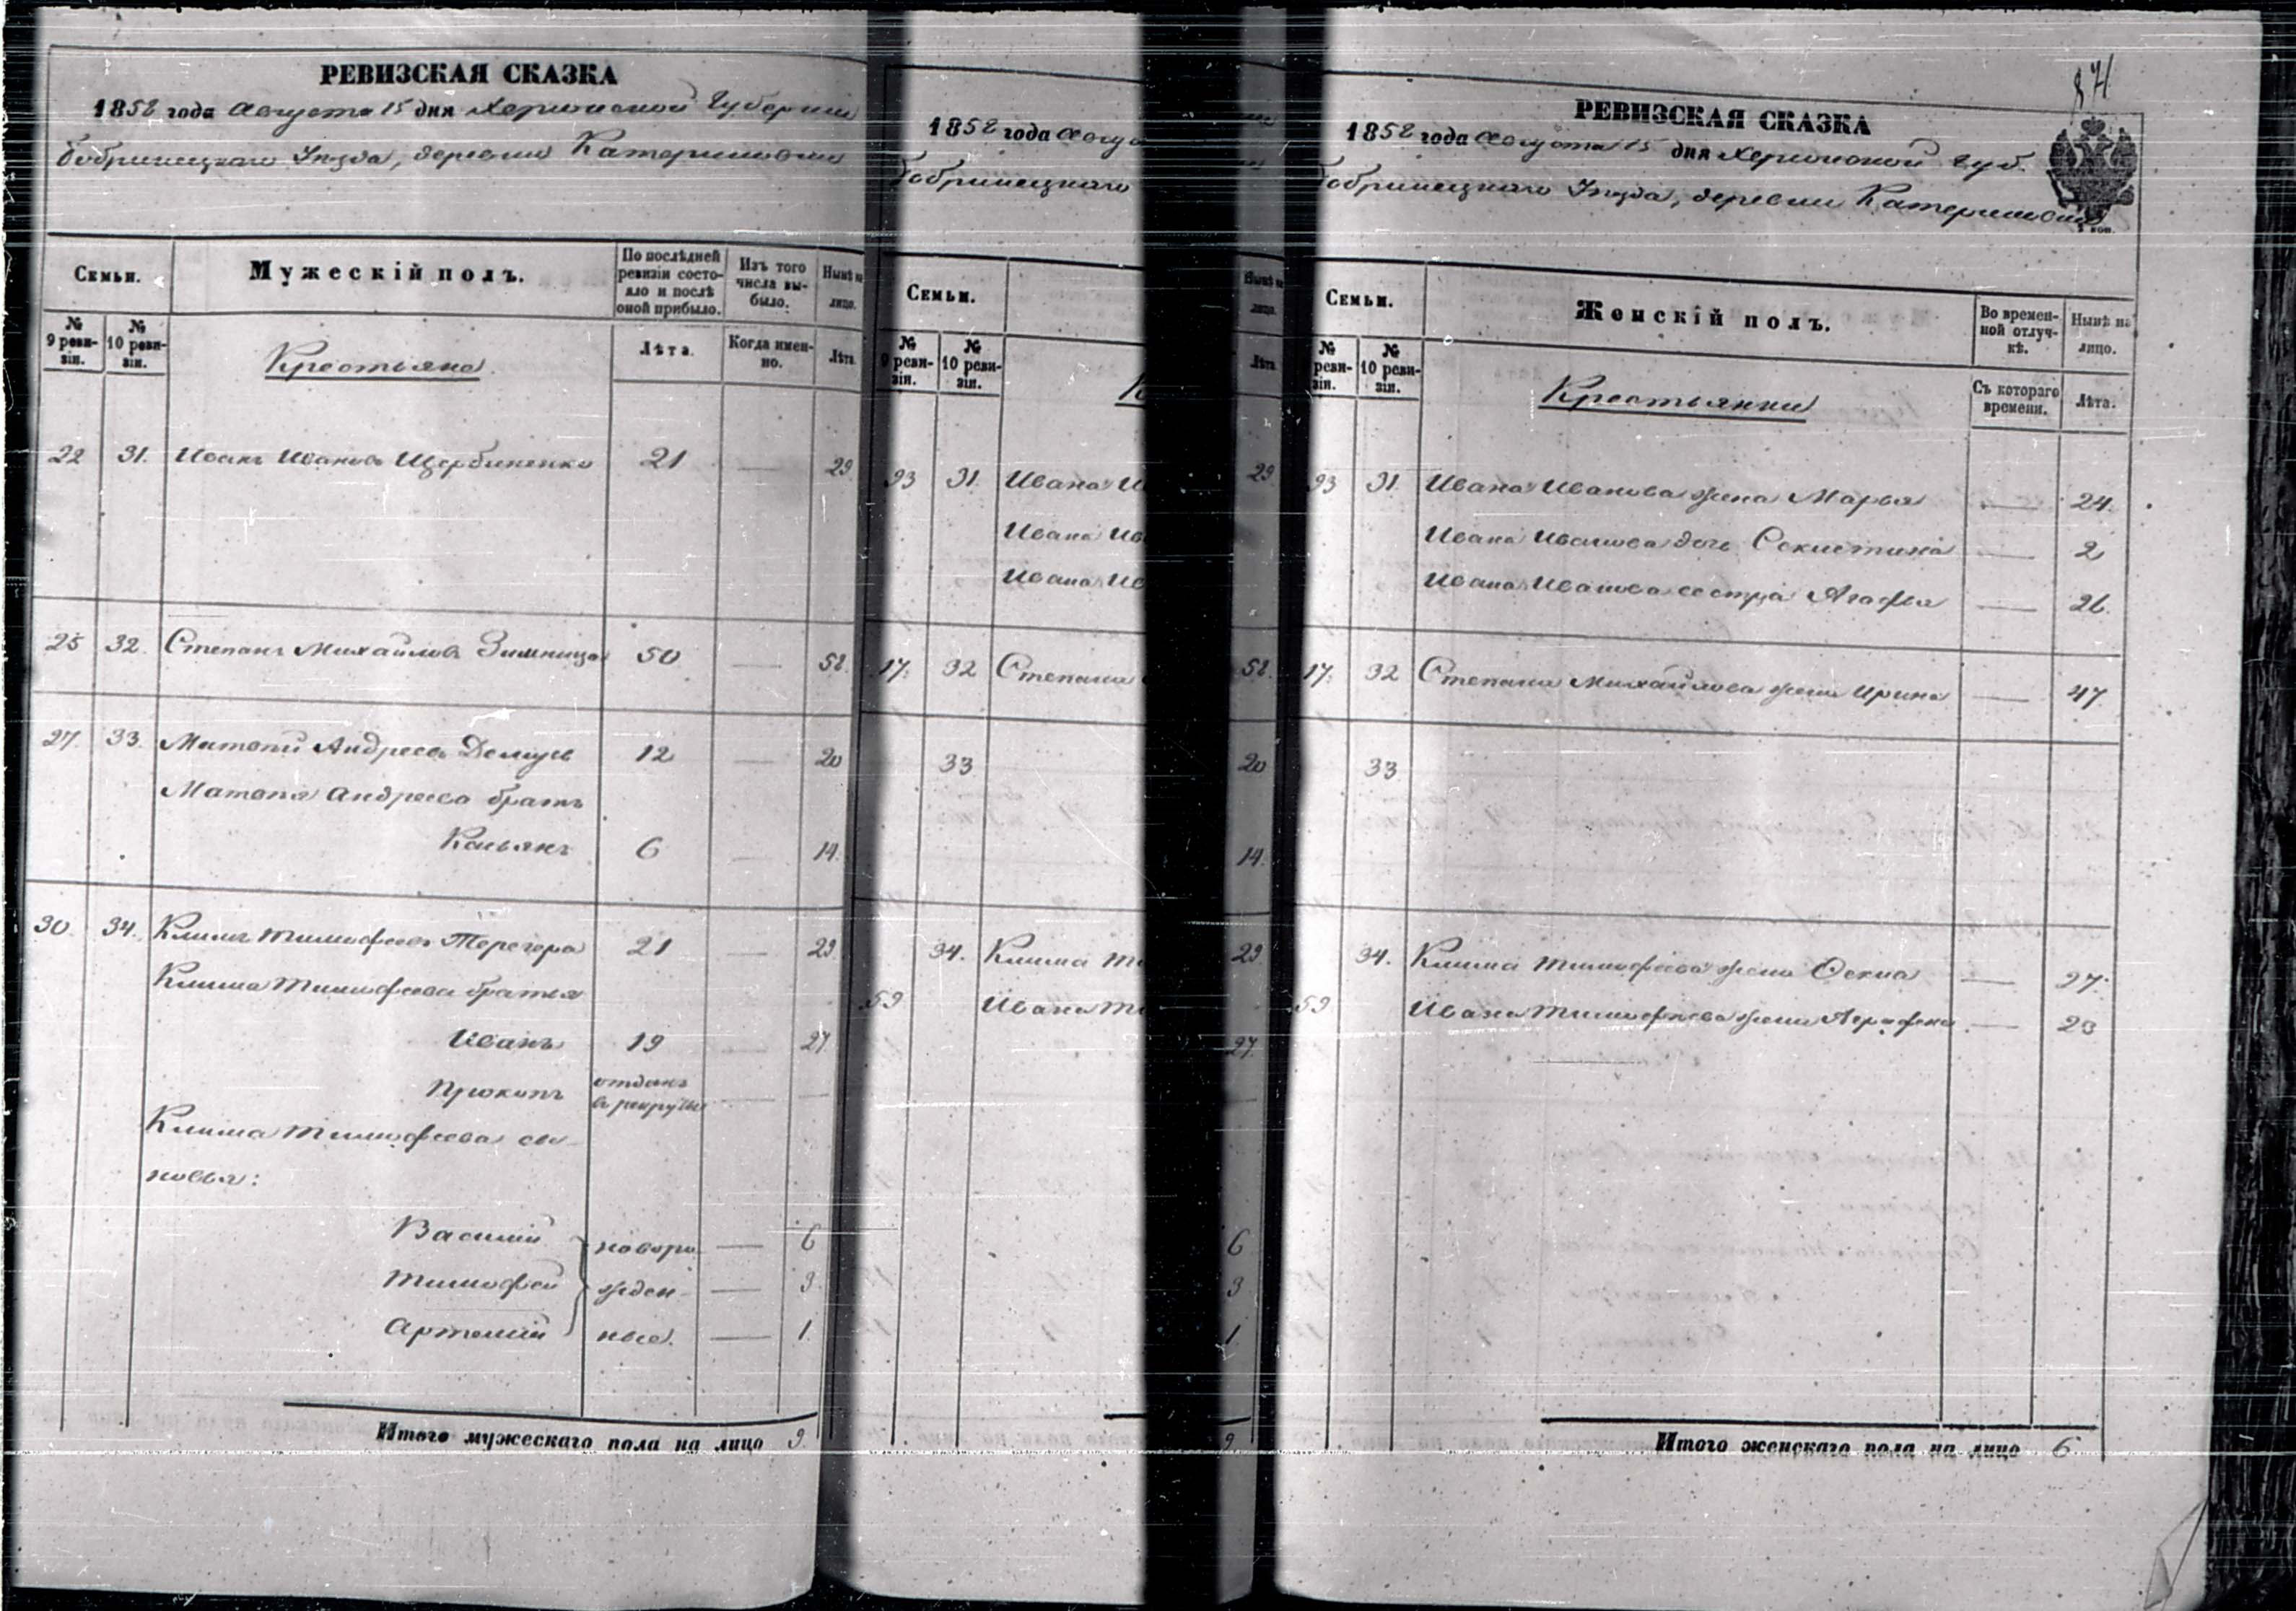 РЕВИЗСКАЯ СКАЗКА
1858 года Августа 15 дня Херсонской Губернии
Бобринецкаго Уѣзда, деревни Катериновки
Семьи.
Мужескій полъ.
По послѣдней ревизіи состояло и послѣ оной прибыло.
Изъ того числа выбыло.
Нынѣ на лицо.
№ 9 ревизіи.
№ 10 ревизіи.
Крестьяне.
Лѣта.
Когда именно.
Лѣта.
22 31. Иванъ Ивановъ Щербиненко 21 — 29
25 32. Степанъ Михайловъ Зимница 50 — 58.
27. 33. Матвѣй Андреевъ 12 — 20
Матвѣя Андреева братъ
Касьянъ 6 — 14.
30. 34. Климъ Тимофеевъ 21 — 29
Клима Тимофеева братья
Иванъ 19 — 27.
Прокопъ отданъ в рекруты — —
Клима Тимофеева сы-
новья:
Василій новоро- — 6
Тимофей жден- — 3
Артемій ные. — 1.
Итого мужескаго пола на лицо 9.
1858 года Авгу
Бобринецкаго
Семьи.
9 ревизіи.
№ 10 ревизіи.
К
93 31. Ивана И
Ивана Ив
Ивана Ив
17. 32 Степана
33
34. Клима Ти
59 Ивана Ти
Нынѣ на лицо.
Лѣта
29.
58.
20
14.
29.
27.
6
3
1.
9.
84
РЕВИЗСКАЯ СКАЗКА
1858 года Августа 15 дня Херсонской Губ.
Бобринецкаго Уѣзда, деревни Катериновки
Семьи.
Женскій полъ.
Во временной отлучкѣ.
Нынѣ на лицо.
№ ревизіи.
№ 10 ревизіи.
Крестьянки
Съ котораго времени.
Лѣта.
93 31. Ивана Иванова жена Марья — 24.
Ивана Иванова дочь — 2
Ивана Иванова сестра Агафья — 26.
17. 32 Степана Михайлова жена Ирина — 47.
33
34. Клима Тимофеева жена — 27.
59 Ивана Тимофеева жена Аграфена. — 23
Итого женскаго пола на лицо 6.